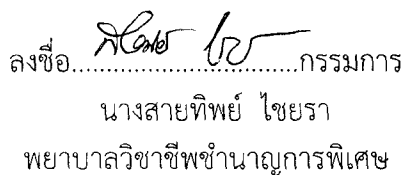 ลงชื่อ..............................กรรมการ
นางสายทิพย์ ไชยรา
พยาบาลวิชาชีพชำนาญการพิเศษ